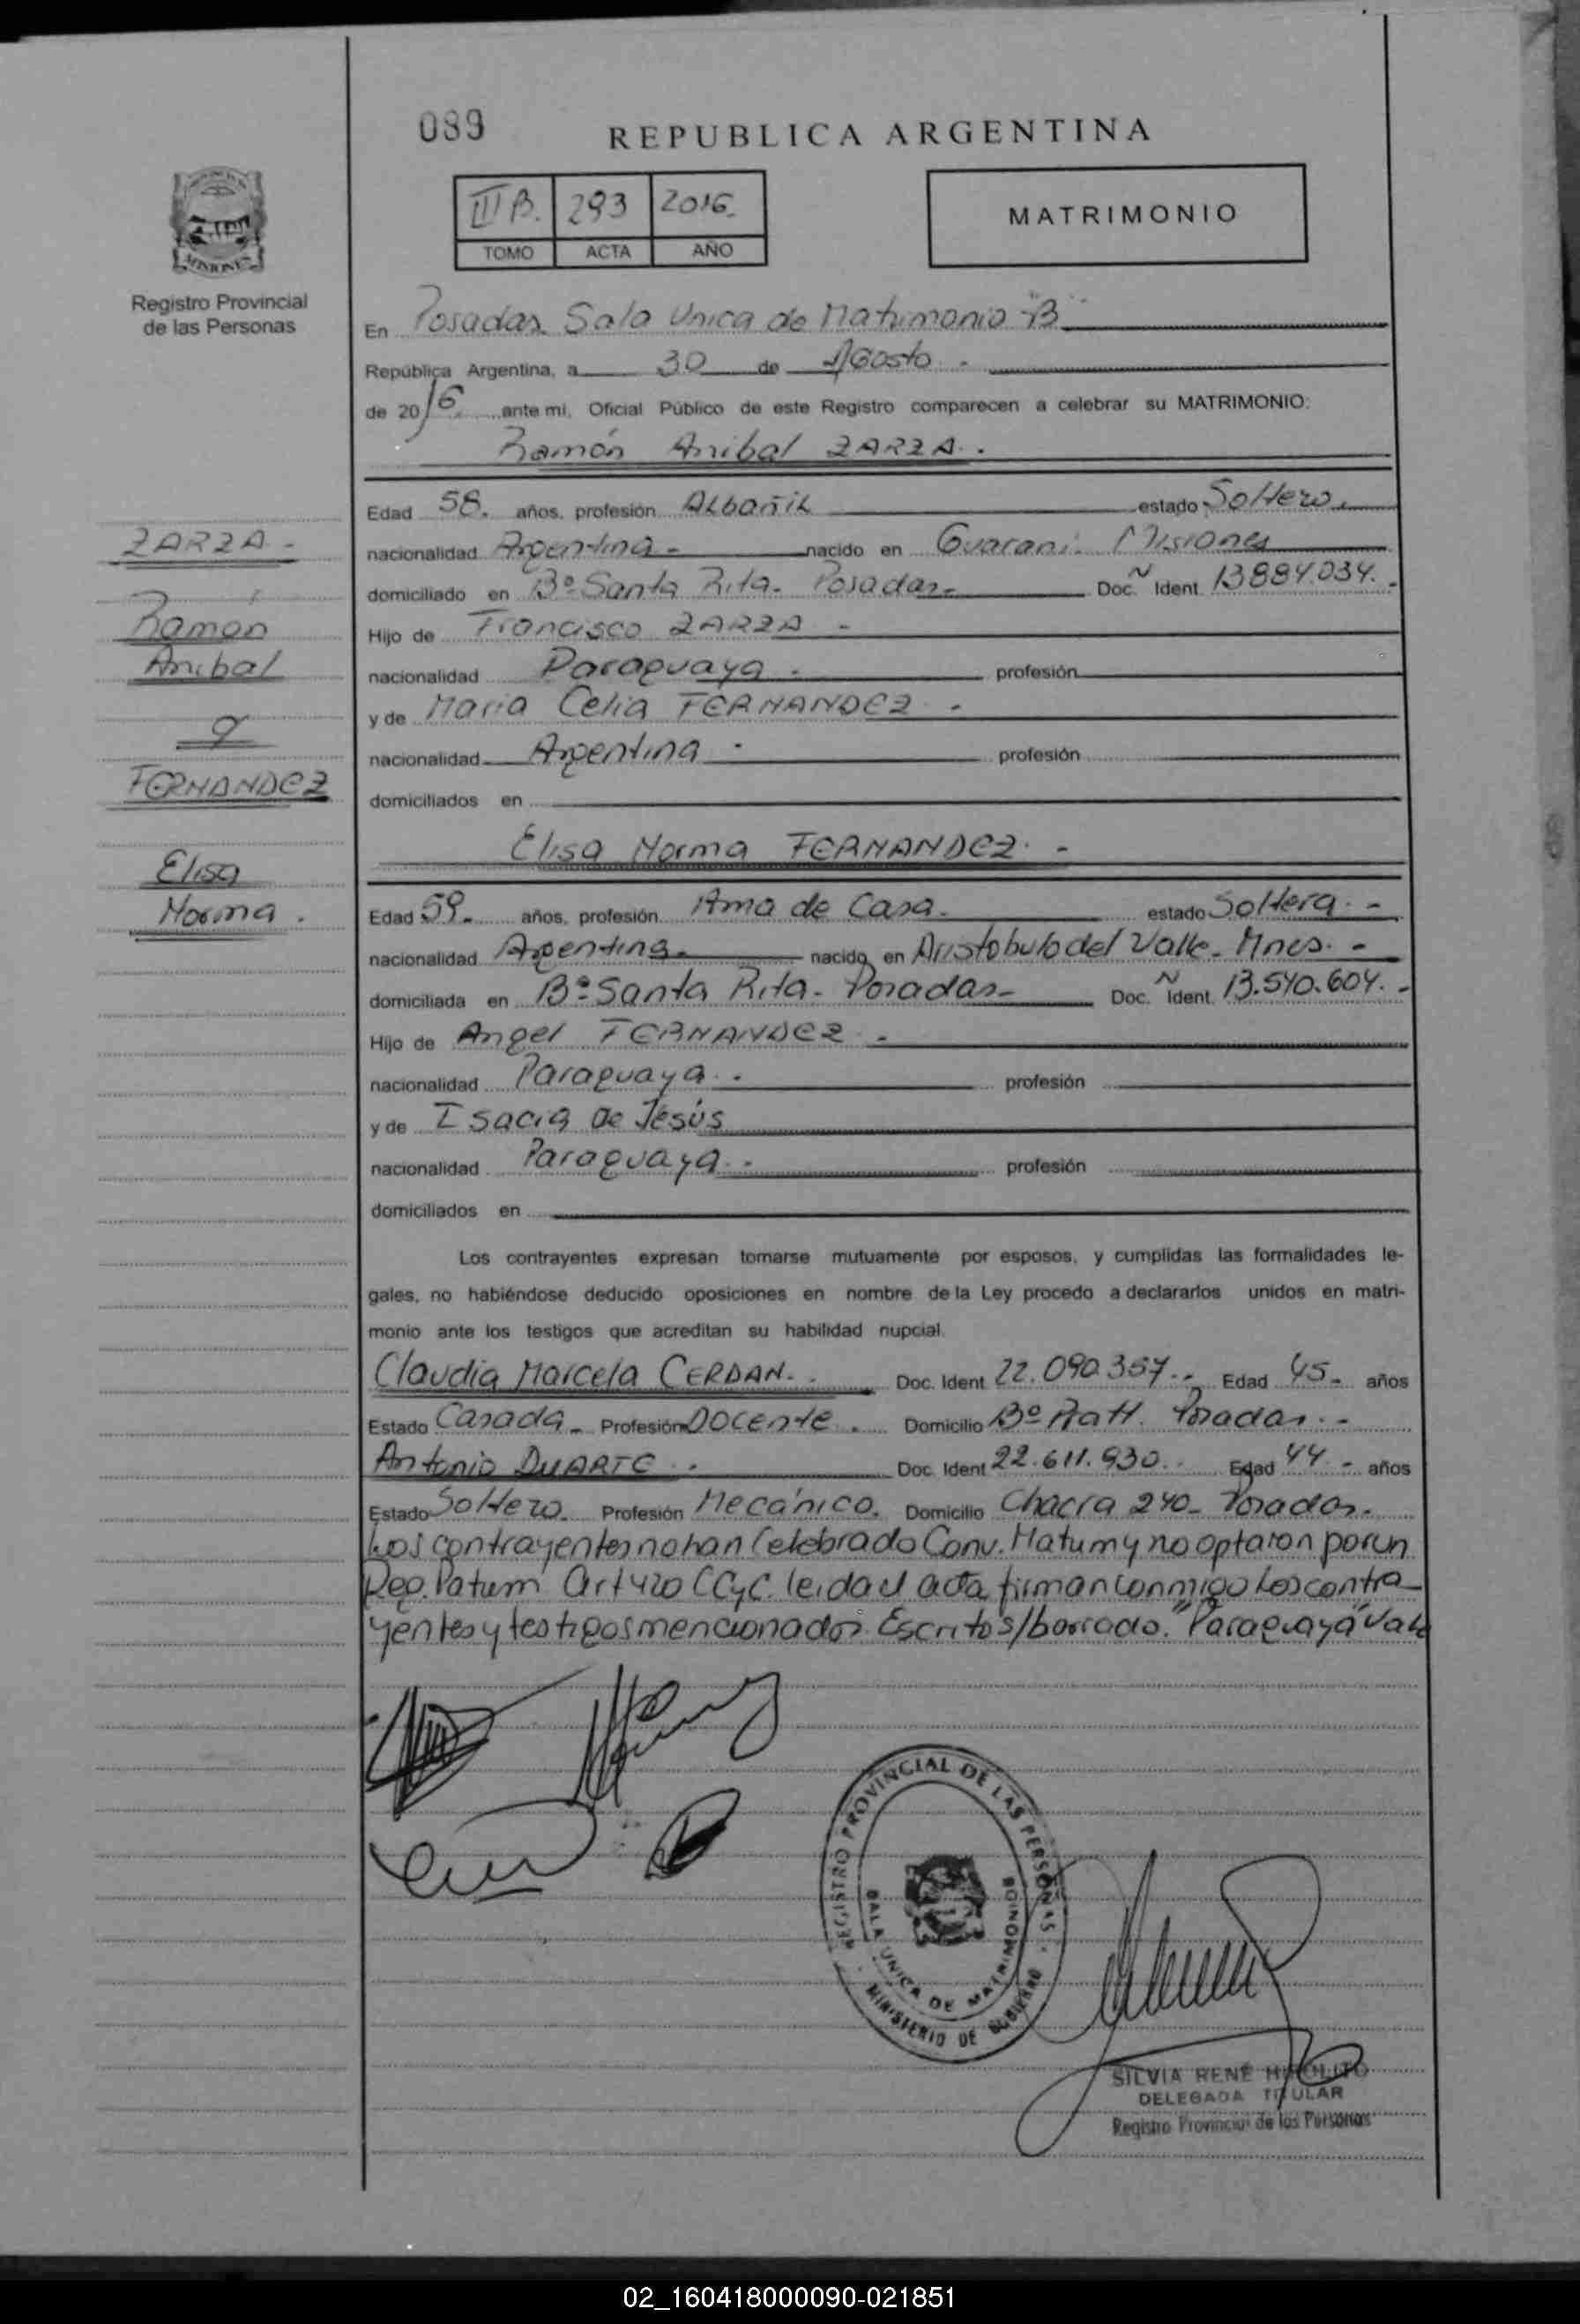 089
REPUBLICA ARGENTINA
III B. 293 2016.
TOMO ACTA AÑO
MATRIMONIO
MISIONES
Registro Provincial
de las Personas
En Posadas Sala Unica de Matrimonio "B"
República Argentina, a 30 de Agosto.
de 2016. ante mi, Oficial Público de este Registro comparecen a celebrar su MATRIMONIO:
Ramón Anibal ZARZA.
ZARZA
Ramón
Anibal
y
FERNANDEZ
Elisa
Norma.
Edad 58. años, profesión ALbañiL estado Soltero.
nacionalidad Argentina nacido en Guaraní. Misiones
domiciliado en Bº Santa Rita. Posadas Doc. N Ident. 13884.034.
Hijo de Francisco ZARZA
nacionalidad Paraguaya. profesión
y de Maria Celia FERNANDEZ.
nacionalidad Argentina profesión
domiciliados en
Elisa Norma FERNANDEZ.
Edad 59. años, profesión Ama de Casa. estado Soltera.
nacionalidad Argentina. nacida en Aristobulo del Valle. Mnes.
domiciliada en Bº Santa Rita. Posadas Doc. N Ident. 13.540.604.
Hijo de Angel FERNANDEZ.
nacionalidad Paraguaya. profesión
y de Isacia De Jesús
nacionalidad Paraguaya. profesión
domiciliados en
Los contrayentes expresan tomarse mutuamente por esposos, y cumplidas las formalidades le-
gales, no habiéndose deducido oposiciones en nombre de la Ley procedo a declararlos unidos en matri-
monio ante los testigos que acreditan su habilidad nupcial.
Claudia Marcela CERDAN. Doc. Ident. 22.090.357. Edad 45. años
Estado Casada Profesión Docente. Domicilio Bº Pratt. Posadas.
Antonio DUARTE. Doc. Ident 22.611.930. Edad 44 años
Estado Soltero. Profesión Mecánico. Domicilio Chacra 240 Posadas.
Los contrayentes no han Celebrado Conv. Matrim y no optaron por un
Reg. Patrim art 420 CCyC. leida el acta firman conmigo Los contra-
yentes y testigos mencionados. Escrito s/borrado. "Paraguaya" Vale
REGISTRO PROVINCIAL DE LAS PERSONAS
SALA UNICA DE MATRIMONIOS
MINISTERIO DE GOBIERNO
SILVIA RENÉ HIPOLITO
DELEGADA TITULAR
Registro Provincial de las Personas
02_160418000090-021851